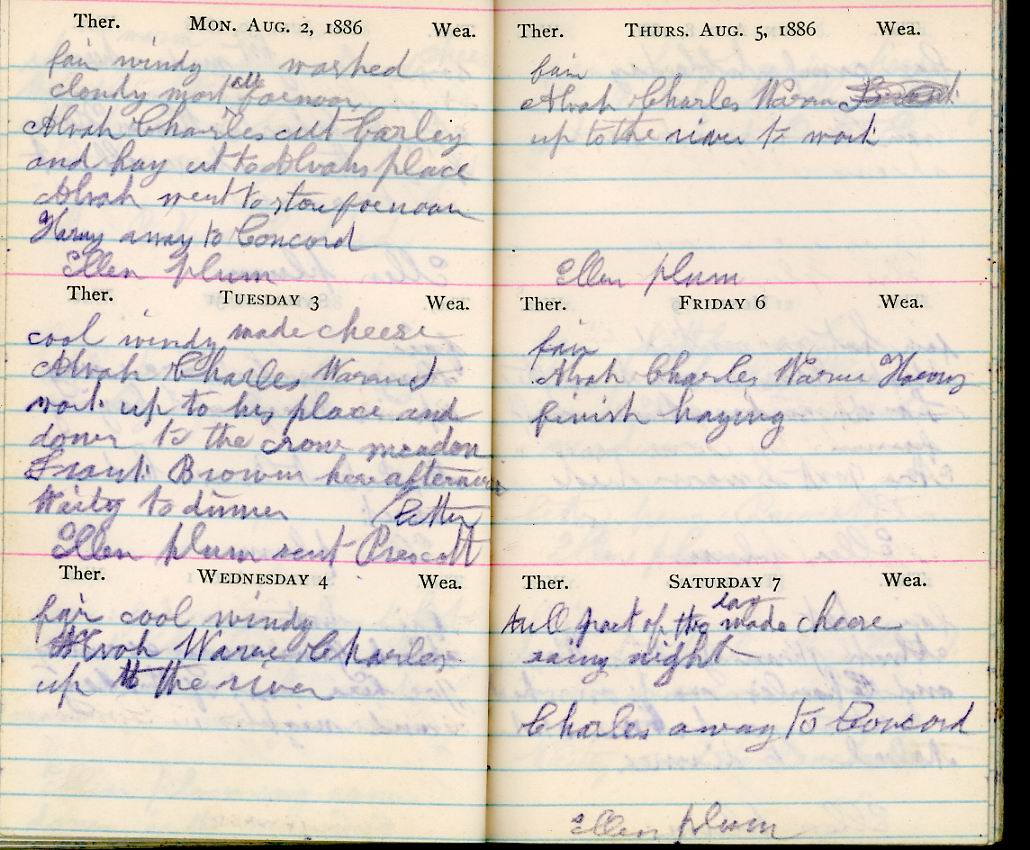 Ther. MON. AUG. 2, 1886 Wea.
fair windy washed
cloudy most all forenoon
Alvah Charles cut barley
and hay up to Alvahs place
Alvah went to store forenoon
Harvy away to Concord
Ellen plum
Ther. TUESDAY 3 Wea.
cool windy made cheese
Alvah Charles Warned
work up to his place and
down to the crow meadow
Frank Brown here afternoon
to dinner letter
Ellen plum sent Prescott
Ther. WEDNESDAY 4 Wea.
fair cool windy
Alvah Warne Charles
up to the river
Ther. THURS. AUG. 5, 1886 Wea.
fair
Alvah Charles Warne
up to the river to work
Ellen plum
Ther. FRIDAY 6 Wea.
fair
Alvah Charles Warne Harvy
finish haying
Ther. SATURDAY 7 Wea.
part of the day made cheese
rainy night
Charles away to Concord
Ellen plum